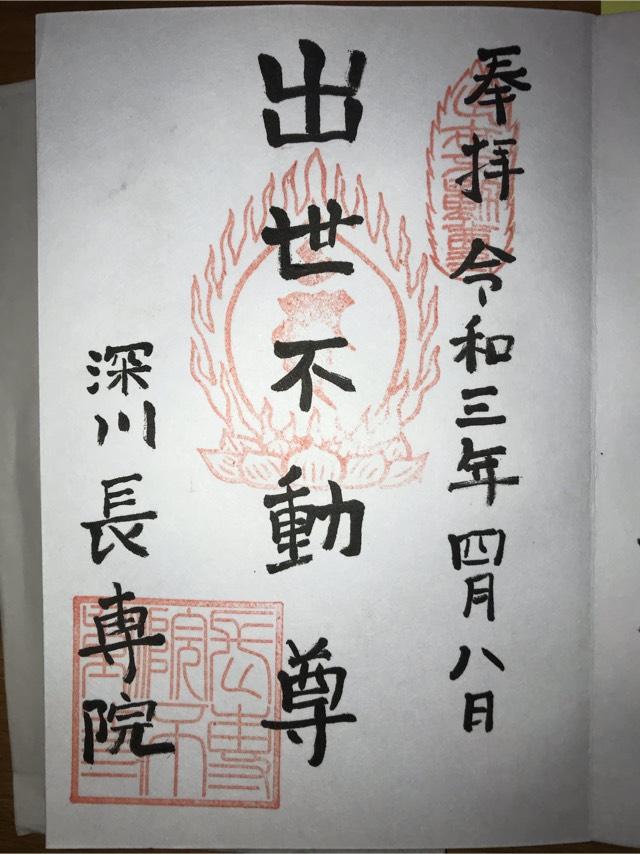 奉拝 令和三年四月八日
出世不動尊
深川 長専院